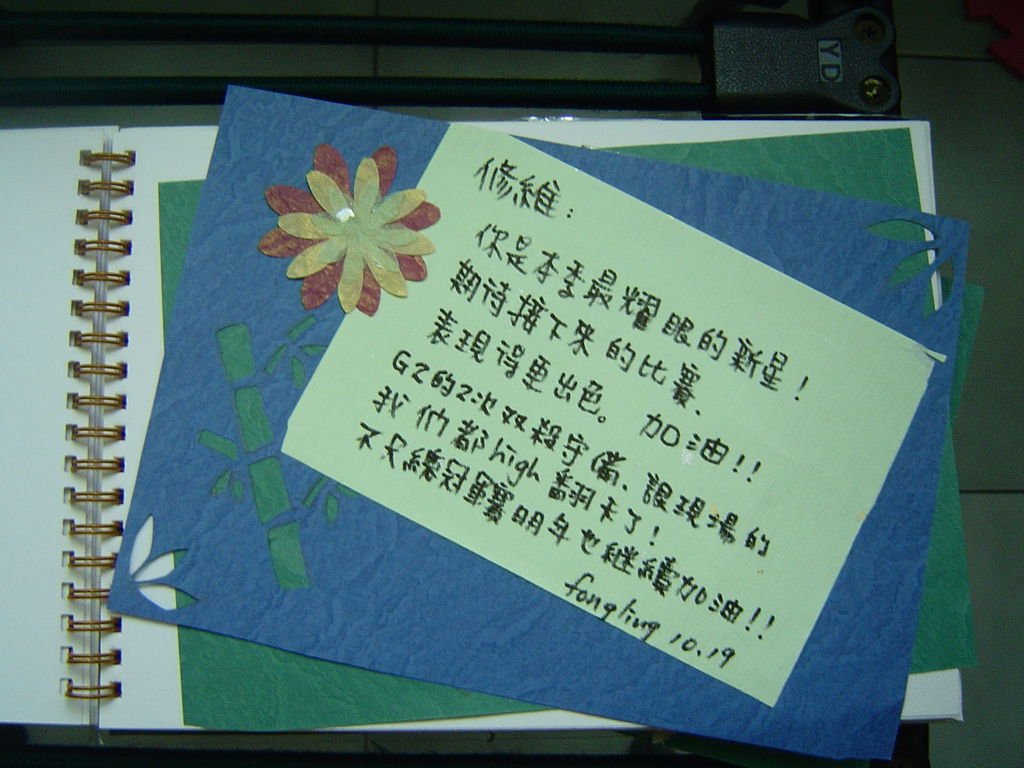 YD
修維:
你是本季最耀眼的新星!
期待接下來的比賽.
表現得更出色。加油!!
G2的2次双殺守備.讓現場的
我們都high翻天了!
不只總冠軍賽明年也継續加油!!
fongling 10.19